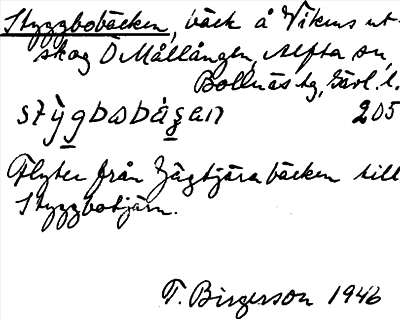 Styggbobäcken, bäck å Vikens ut-
skog Ö Mållången, Alfta sn,
Bollnäs tg, Gävl. l.
205
Flyter från Zågtjärabäcken till
Styggbotjärn.
T. Birgerson 1946